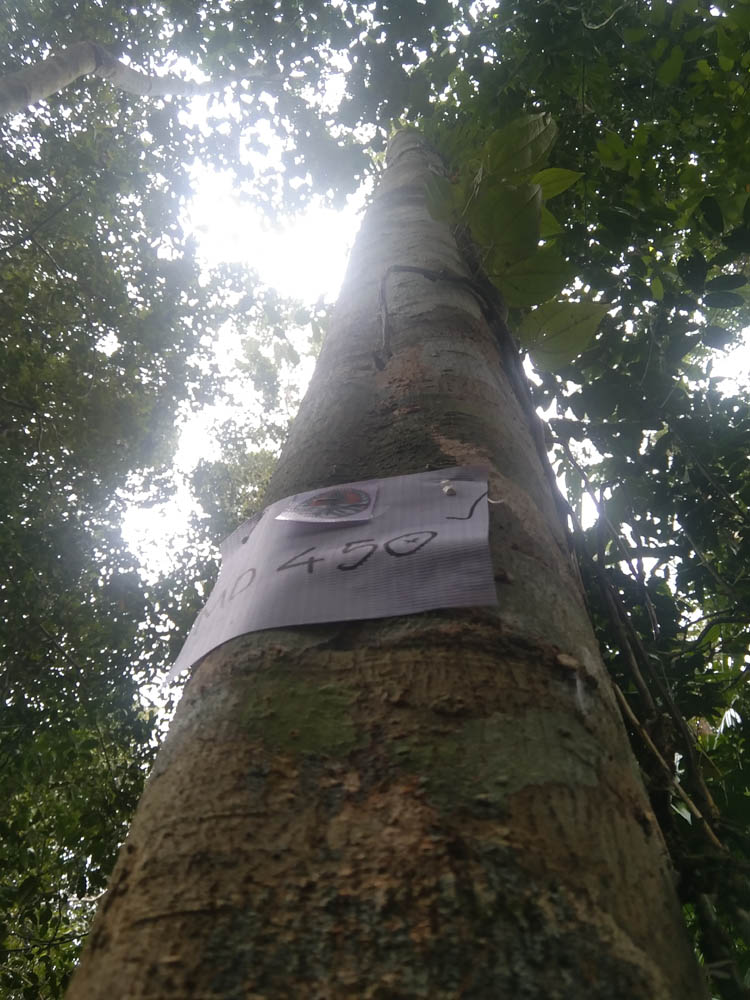 MD 450